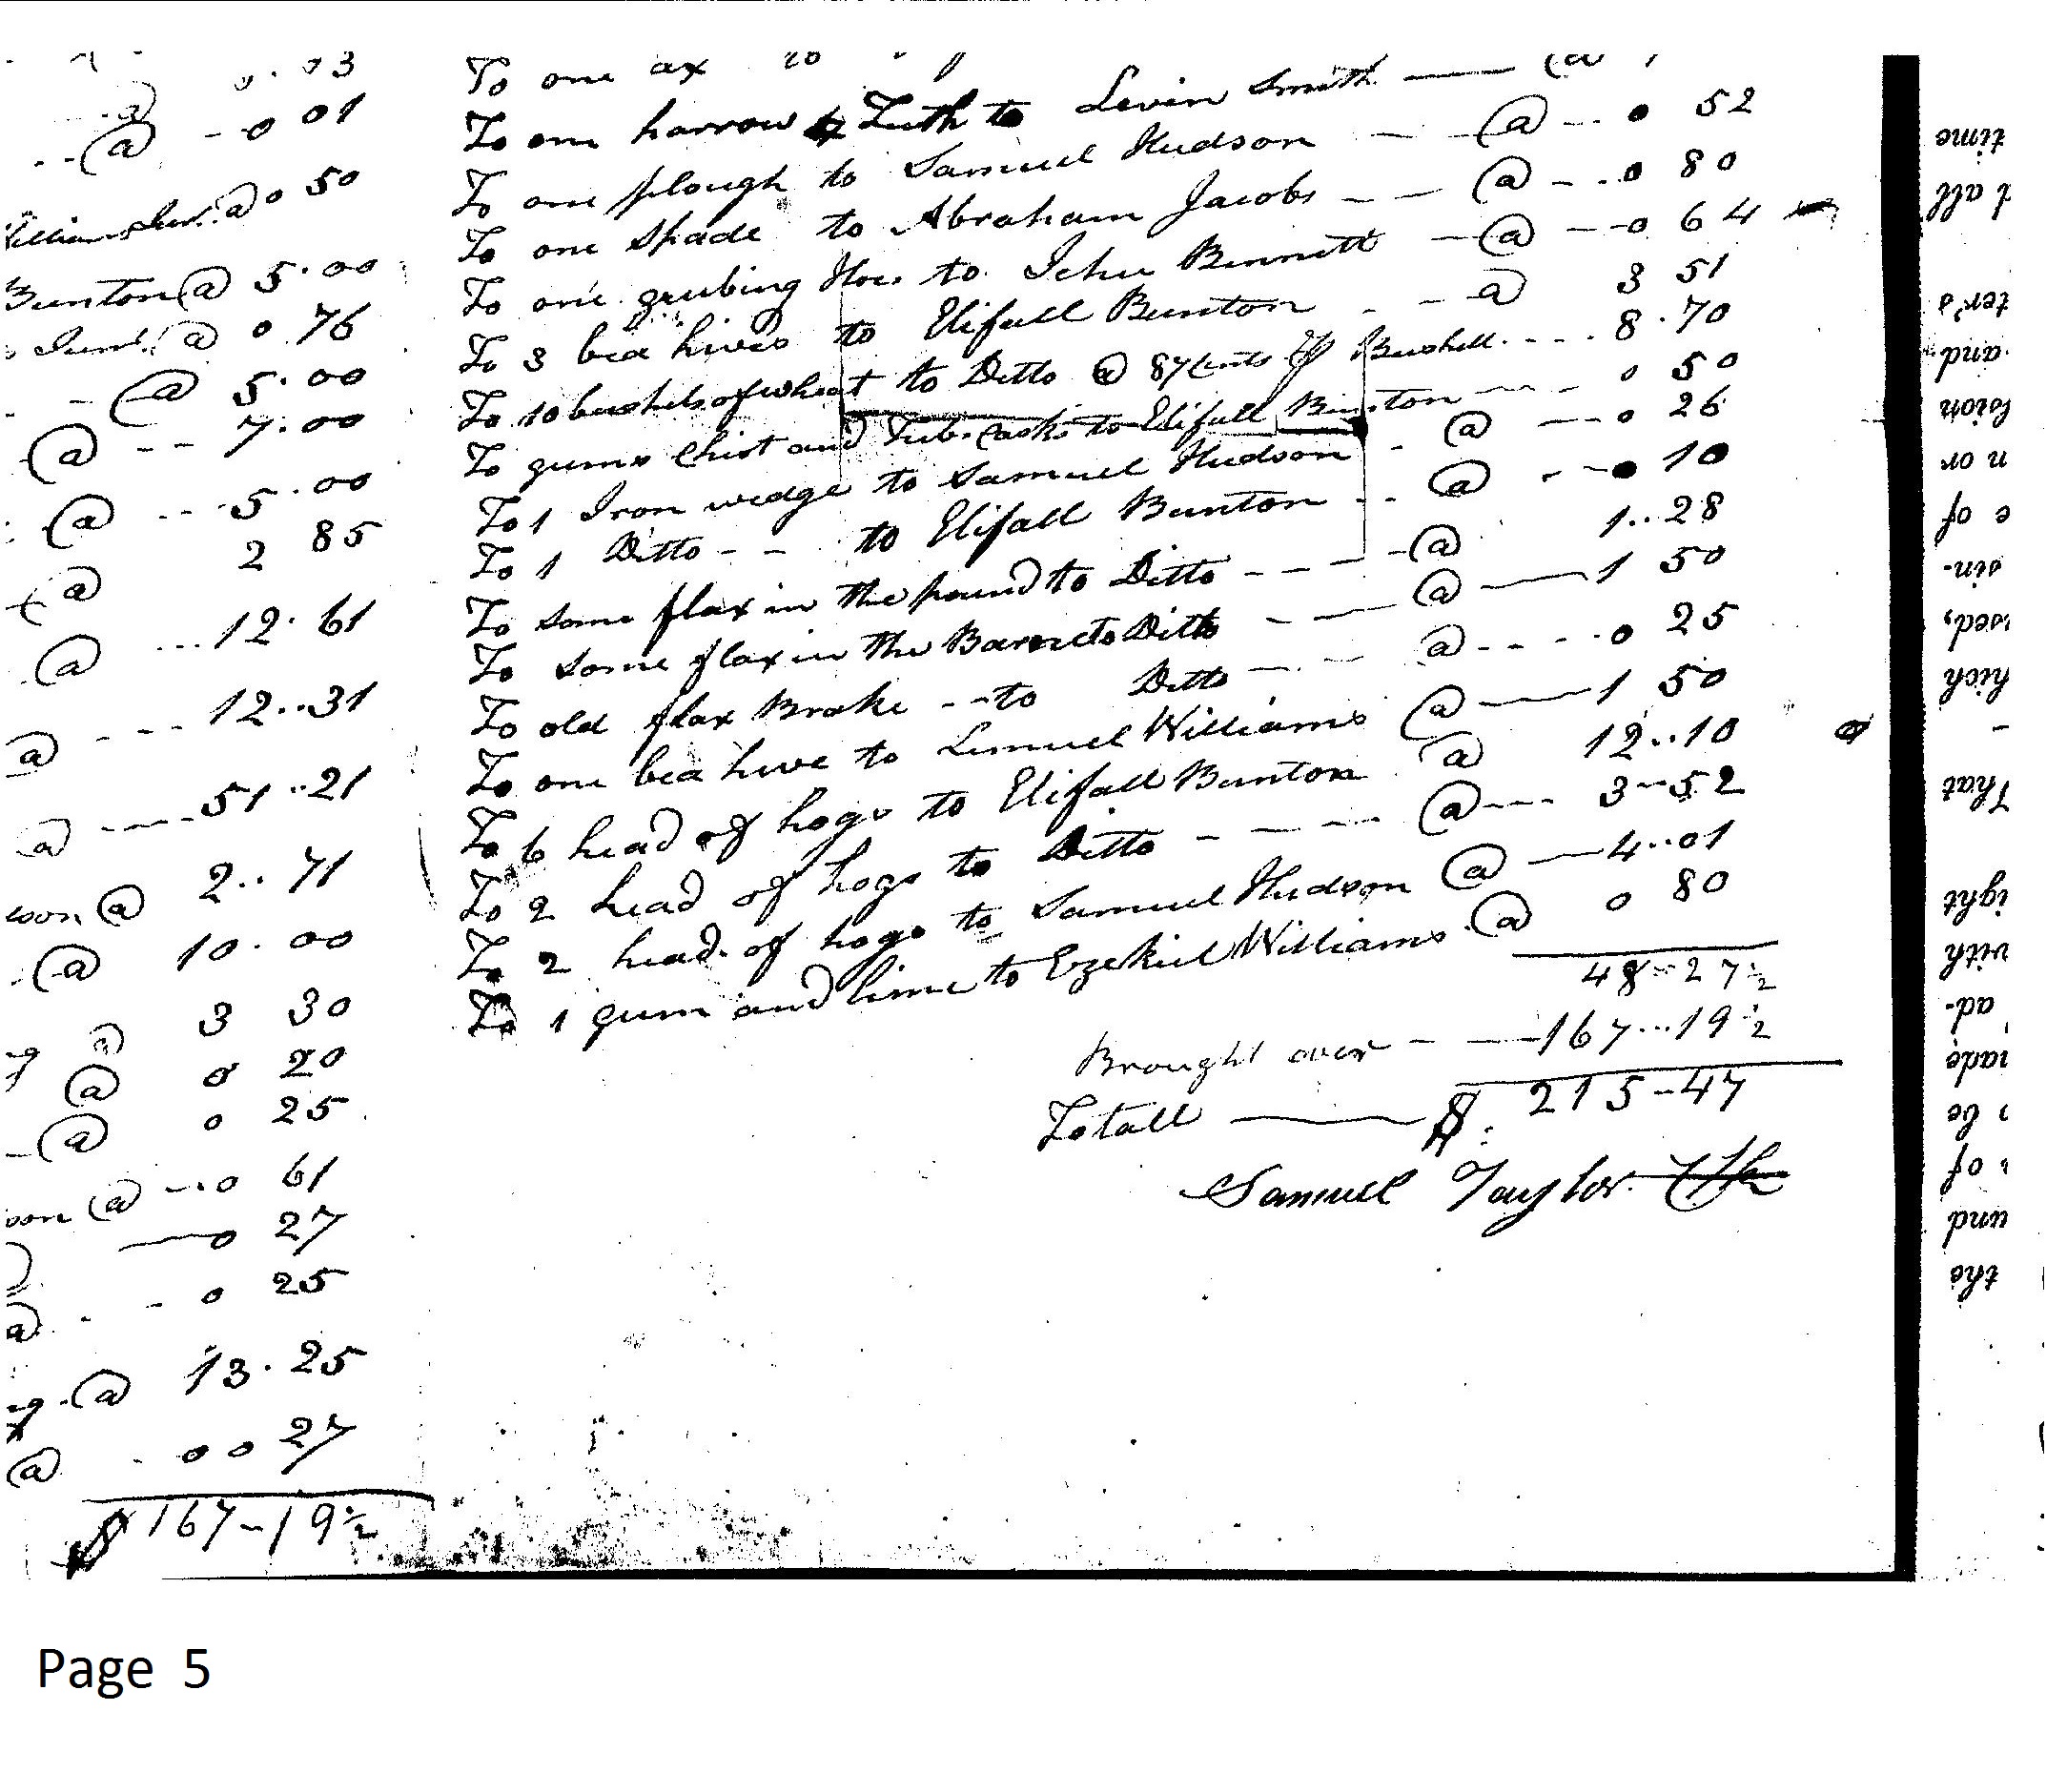 0.03
@ - 0 01
@ 0 50
Bunton @ 5.00
@ 0 76
@ 5.00
@ -- 7.00
@ --- 5.00
@ 2 85
@ ... 12.61
@ --- 12..31
@ ---- 51..21
son @ 2.. 71
@ 10.00
@ 3 30
@ 0 20
@ 0 25
son @ --0 61
0 27
@ - - 0 25
@ 13.25
@ - 0 0 27
$ 167-19½
To one ax to
To one harrow & Teeth to Levin Smith — @
To one plough to Samuel Hudson — @ -- 0 52
To one Spade to Abraham Jacobs -- @ -- 0 80
To one grubing Hoe to Jehu Bennett - @ -- 0 64
To 3 bea hives to Elifall Bunton - - @ 3 51
To 10 bushels of wheat to Ditto @ 87 Cents Bushell .... 8.70
To gums Chist and Tub Casks to Elifall Bunton ---- 0 50
To 1 Iron wedge to Samuel Hudson - @ --- 0 26
To 1 Ditto - - to Elifall Bunton -- @ --0 10
To some flax in the pound to Ditto ---- @ 1..28
To some flax in the Barn to Ditto --- @ — 1 50
To old flax Brake -- to Ditto --- @ ---- 0 25
To one bea hive to Lemuel Williams @ — 1 50
To 6 head of hogs to Elifall Bunton @ 12..10
To 2 head of hogs to Ditto ----- @ --- 3-52
To 2 head of hogs to Samuel Hudson @ — 4..01
To 1 gum and lime to Ezekiel Williams @ 0 80
48-27½
Brought over - — 167...19½
Totall — $ 215-47
Samuel Taylor
time
all
ter's
and
n or
e of
sin-
sed,
hich
That
ight
with
ad-
made
be
of
und
the
Page 5